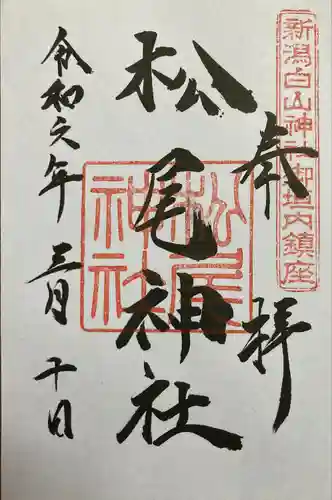 新潟白山神社御垣内鎮座
奉拝
松尾神社
松尾神社
令和六年三月十日